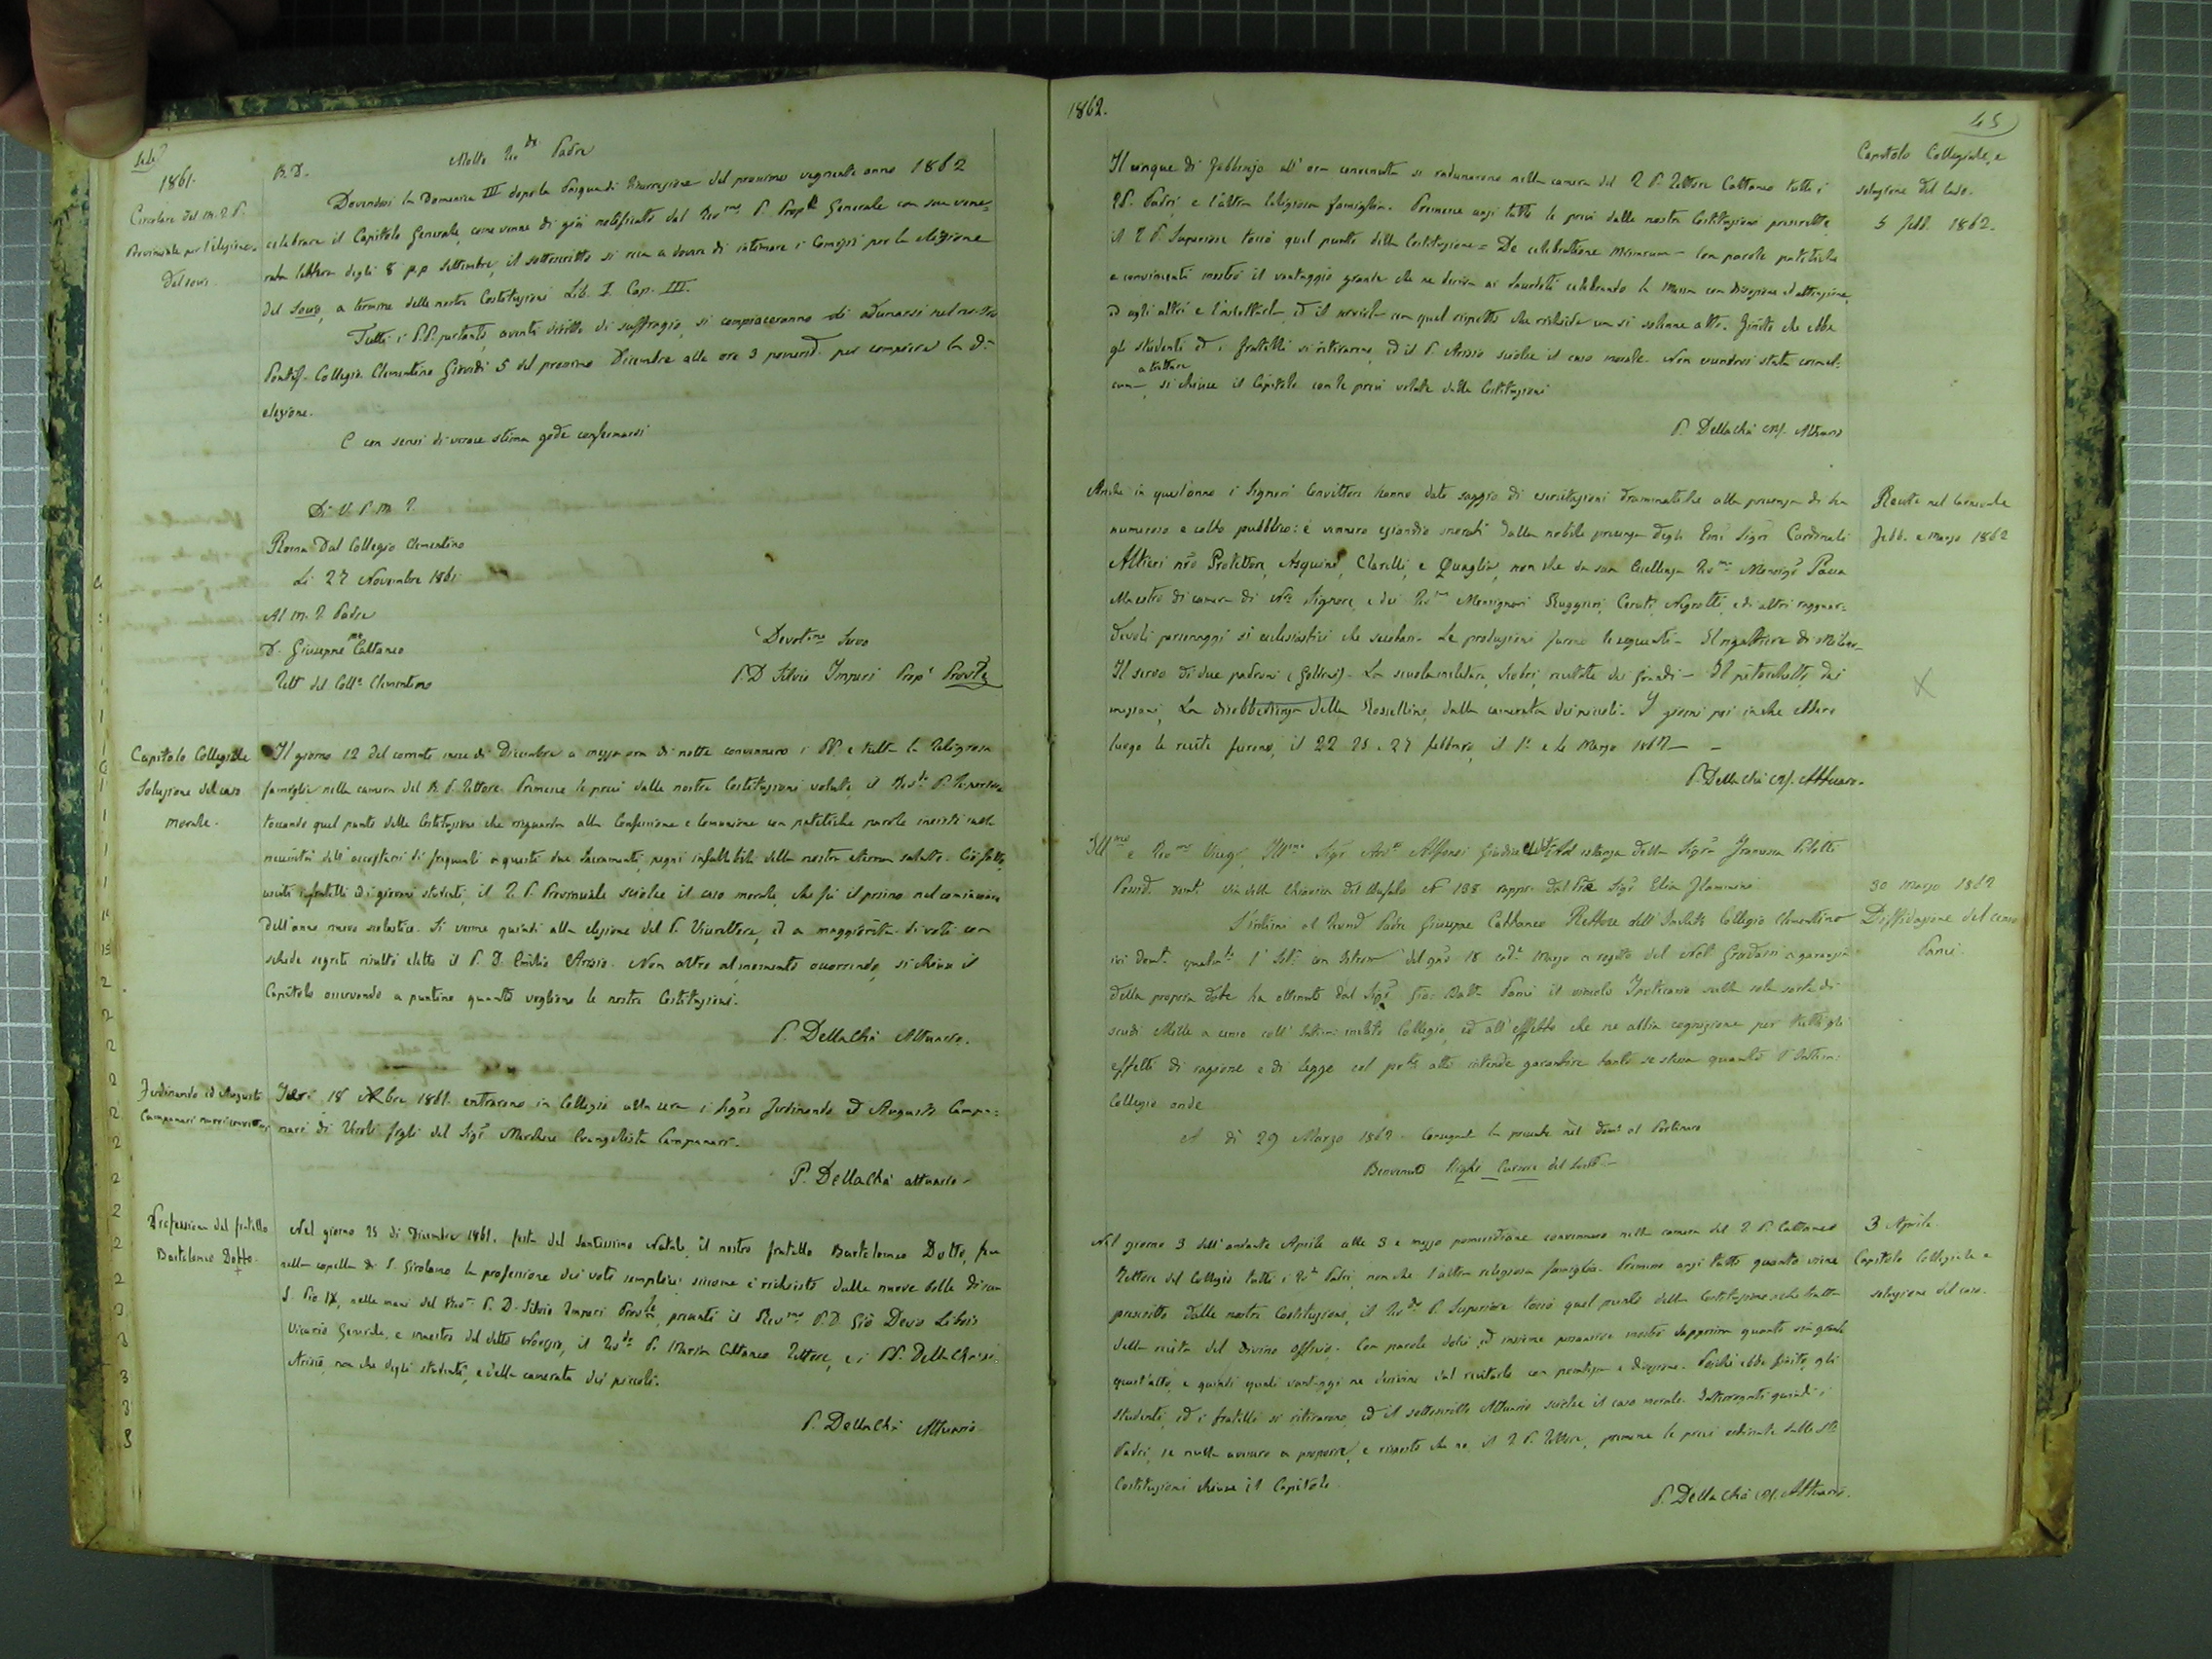 1861.
Circolare del M. R. P.
Provinciale per l'elezione
del Socio
B. D.
Molto Rev.do Padre
Dovendosi la Domenica III dopo la Pasqua di Risurrezione del prossimo vegnente anno 1862
celebrare il Capitolo Generale, come venne di già notificato dal Rev.mo P. Prep.to Generale con sua vene=
rata lettera degli 8 p.p. Settembre, il sottoscritto si reca a dovere di intimare i Comizj per la elezione
del Socio, a termine delle nostre Costituzioni Lib. I. Cap. III.
Tutti i P.P. pertanto, aventi diritto di suffragio, si compiaceranno di adunarsi nel nostro
Pontif. Collegio Clementino Giovedì 5 del prossimo Dicembre alle ore 3 pomerid. per compiere la d.a
elezione.
E con sensi di verace stima gode confermarsi
Di V. P. M. R.
Roma Dal Collegio Clementino
Li 27 Novembre 1861
Al M. R. Padre
D. Giuseppe M.a Cattaneo
Rett.e del Coll.o Clementino
Devot.mo Servo
P. D. Silvio Imperi Prep.o Prov.le
Capitolo Collegiale
Soluzione del caso
morale.
Il giorno 12 del corrente mese di Dicembre a mezz'ora di notte convennero i PP. e tutta la Religiosa
famiglia nella camera del R. P. Rettore. Premesse le preci dalle nostre Costituzioni volute, il Rev.do P. Superiore
toccando quel punto delle Costituzioni che risguarda alla Confessione e Comunione con patetiche parole insistè sulla
necessità dell'accostarsi di frequente a questi due Sacramenti, pegni infallibili della nostra eterna salute. Ciò fatto,
usciti i fratelli ed i giovani studenti, il R. P. Provinciale sciolse il caso morale, che fu il primo nel cominciare
dell'anno nuovo scolastico. Si venne quindi alla elezione del P. Vicerettore, ed a maggiorità di voti con
schede segrete risultò eletto il P. D. Emilio Arisio. Non altro al momento occorrendo, si chiuse il
Capitolo osservando a puntino quanto vogliono le nostre Costituzioni.
P. Dellachà Attuario.
Ferdinando ed Augusto
Campanari nuovi convittori
Ieri 18 Xbre 1861. entrarono in Collegio alla sera i Sig.ri Ferdinando ed Augusto Campa=
nari di Veroli figli del Sig.r Marchese Evangelista Campanari.
P. Dellachà attuario
Professione del fratello
Bartolomeo Dotto.
Nel giorno 25 di Dicembre 1861. festa del Santissimo Natale, il nostro fratello Bartolomeo Dotto, fece
nella capella di S. Girolamo la professione dei voti semplici siccome è richiesto dalle nuove bolle di sua
S. Pio IX, nelle mani del Rev.mo P. D. Silvio Imperi Prov.le, presenti il Rev.mo P. D. Giò Devo Libois
Vicario Generale, e maestro del detto Novizio, il Rev.do P. Maria Cattaneo Rettore, e i PP. Dellachà, ed
Arisio, non che degli studenti, e della camerata dei piccoli.
P. Dellachà Attuario
1862.
45
Capitolo Collegiale, e
soluzione del caso.
5 febb. 1862.
Il cinque di Febbrajo all'ora convenuta si radunarono nella camera del R. P. Rettore Cattaneo tutti i
RR. Padri, e l'altra religiosa famiglia. Premesse anzi tutto le preci dalle nostre Costituzioni prescritte,
il R. P. Superiore toccò quel punto della Costituzione = De celebratione Missarum = Con parole patetiche
e convincenti mostrò il vantaggio grande che ne deriva ai Sacerdoti celebrando la Messa con divozione ed attenzione,
ed agli altri e l'ascoltarla, ed il servirla con quel rispetto che richiede un sì solenne atto. Finito che ebbe
gli studenti ed i fratelli si ritirarono, ed il P. Arisio sciolse il caso morale. Non essendovi stata cosa al=
cuna a trattare, si chiuse il Capitolo con le preci volute dalle Costituzioni
P. Dellachà CRS. Attuario
Recite nel Carnevale
Febb. e Marzo 1862
Anche in quest'anno i Signori Convittori hanno dato saggio di esercitazioni drammatiche alla presenza di un
numeroso e colto pubblico: e vennero eziandio onorati dalla nobile presenza degli E.mi Sig.ri Cardinali
Altieri n.ro Protettore, Asquini, Clarelli, e Quaglia, non che da sua Eccellenza Rev.ma Monsig.r Pacca
Maestro di camera di N.ro Signore, e dei Rev.mi Monsignori Ruggieri, Cenuti, Negrotti, e di altri ragguar=
devoli personaggi sì ecclesiastici che secolari. Le produzioni furono le seguenti -
Il servo di due padroni (Goldoni) - La scuola militare, recitate dai Grandi -
mezzani, La disobbedienza della Rossellina, dalla camerata dei piccoli. I giorni poi in che ebbero
luogo le recite furono, il 22 25 . 27 febbraro, il 1.o e 4 Marzo 1862 -
P. Dellachà CRS. Attuario.
30 Marzo 1862
Diffidazione del censo
Panci.
Ill.mo e Rev.mo Viceg. Ill.mo Sig.r Avv.to Alfonsi Giudice Ad istanza della Sig.ra Francesca Piletti
Possid. domt. via della Chiavica del Bufalo N. 138 rappr. dal Pre Sig.r Elia Flaminini
S'intimi al Revnd. Padre Giuseppe Cattaneo Rettore dell'Inclito Collegio Clementino
ivi domt. qualmte l'Ist.e con Istrom.o del gno 18 cad.e Marzo a rogito del Not. Giordani a garanzia
della propria dote ha ottenuto dal Sig.r Gio: Batt. Panci il vincolo Ipotecario sulla sola sorte di
scudi Mille a censo coll'Intim: inclito Collegio, ed all'effetto che ne abbia cognizione per tutti gli
effetti di ragione e di legge col pnte atto intende garantire tanto se stessa quanto l'Intim:
Collegio onde
A dì 29 Marzo 1862. Consegnata la presente nel domo al Portinaro
Benvenuto Righi Cursore del
3 Aprile
Capitolo Collegiale e
soluzione del caso.
Nel giorno 3 dell'andante Aprile alle 3 e mezzo pomeridiane convennero nella camera del R. P. Cattaneo
Rettore del Collegio tutti i Rev.di Padri, non che l'altra religiosa famiglia. Premesso anzi tutto quanto viene
prescritto dalle nostre Costituzioni, il Rev.do P. Superiore toccò quel punto della Costituzione, che tratta
della recita del Divino Officio. Con parole dolci ed insieme persuasive mostrò dapprima quanto sia grande
quest'atto, e quindi quali vantaggi ne derivino dal recitarlo con prontezza e divozione. Poichè ebbe finito, gli
studenti, ed i fratelli si ritirarono, ed il sottoscritto Attuario sciolse il caso morale. Interrogati quindi i
Padri, se nulla avessero a proporre, e risposto che no, il R. P. Rettore, premesse le preci ordinate dalle Ste
Costituzioni chiuse il Capitolo.
P. Dellachà CRS. Attuario.